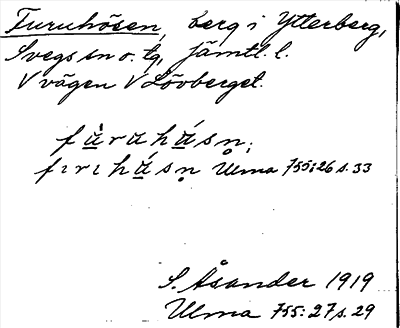 Furuhösen, berg i Ytterberg,
Svegs sn o. tg, Jämtl. l.
V vägen V Lövberget.
fùruhásn̥;
fırıhásn̥ Ulma 755:26 s. 33
S. Åsander 1919
Ulma 755:27 s. 29